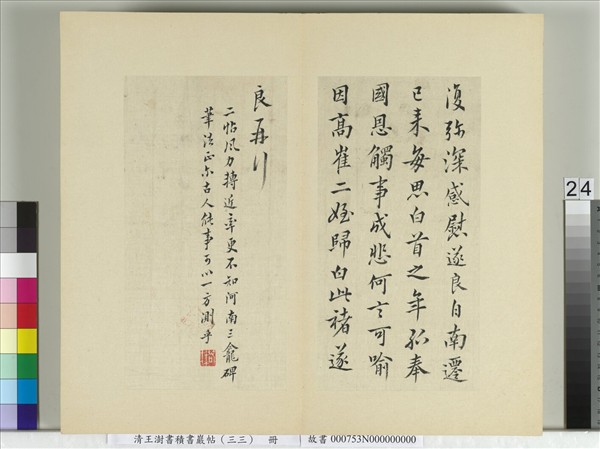 復弥深感慰遂良自南遷
已来每思白首之年孤奉
國恩觸事成悲何言可喻
因高崔二姪歸白此褚遂
良再行
二帖風力搏近率更不知河南三龕碑
筆法正尒古人能事可以一方測乎
24
清王澍書積書巖帖（三三）　冊　故書 000753N000000000